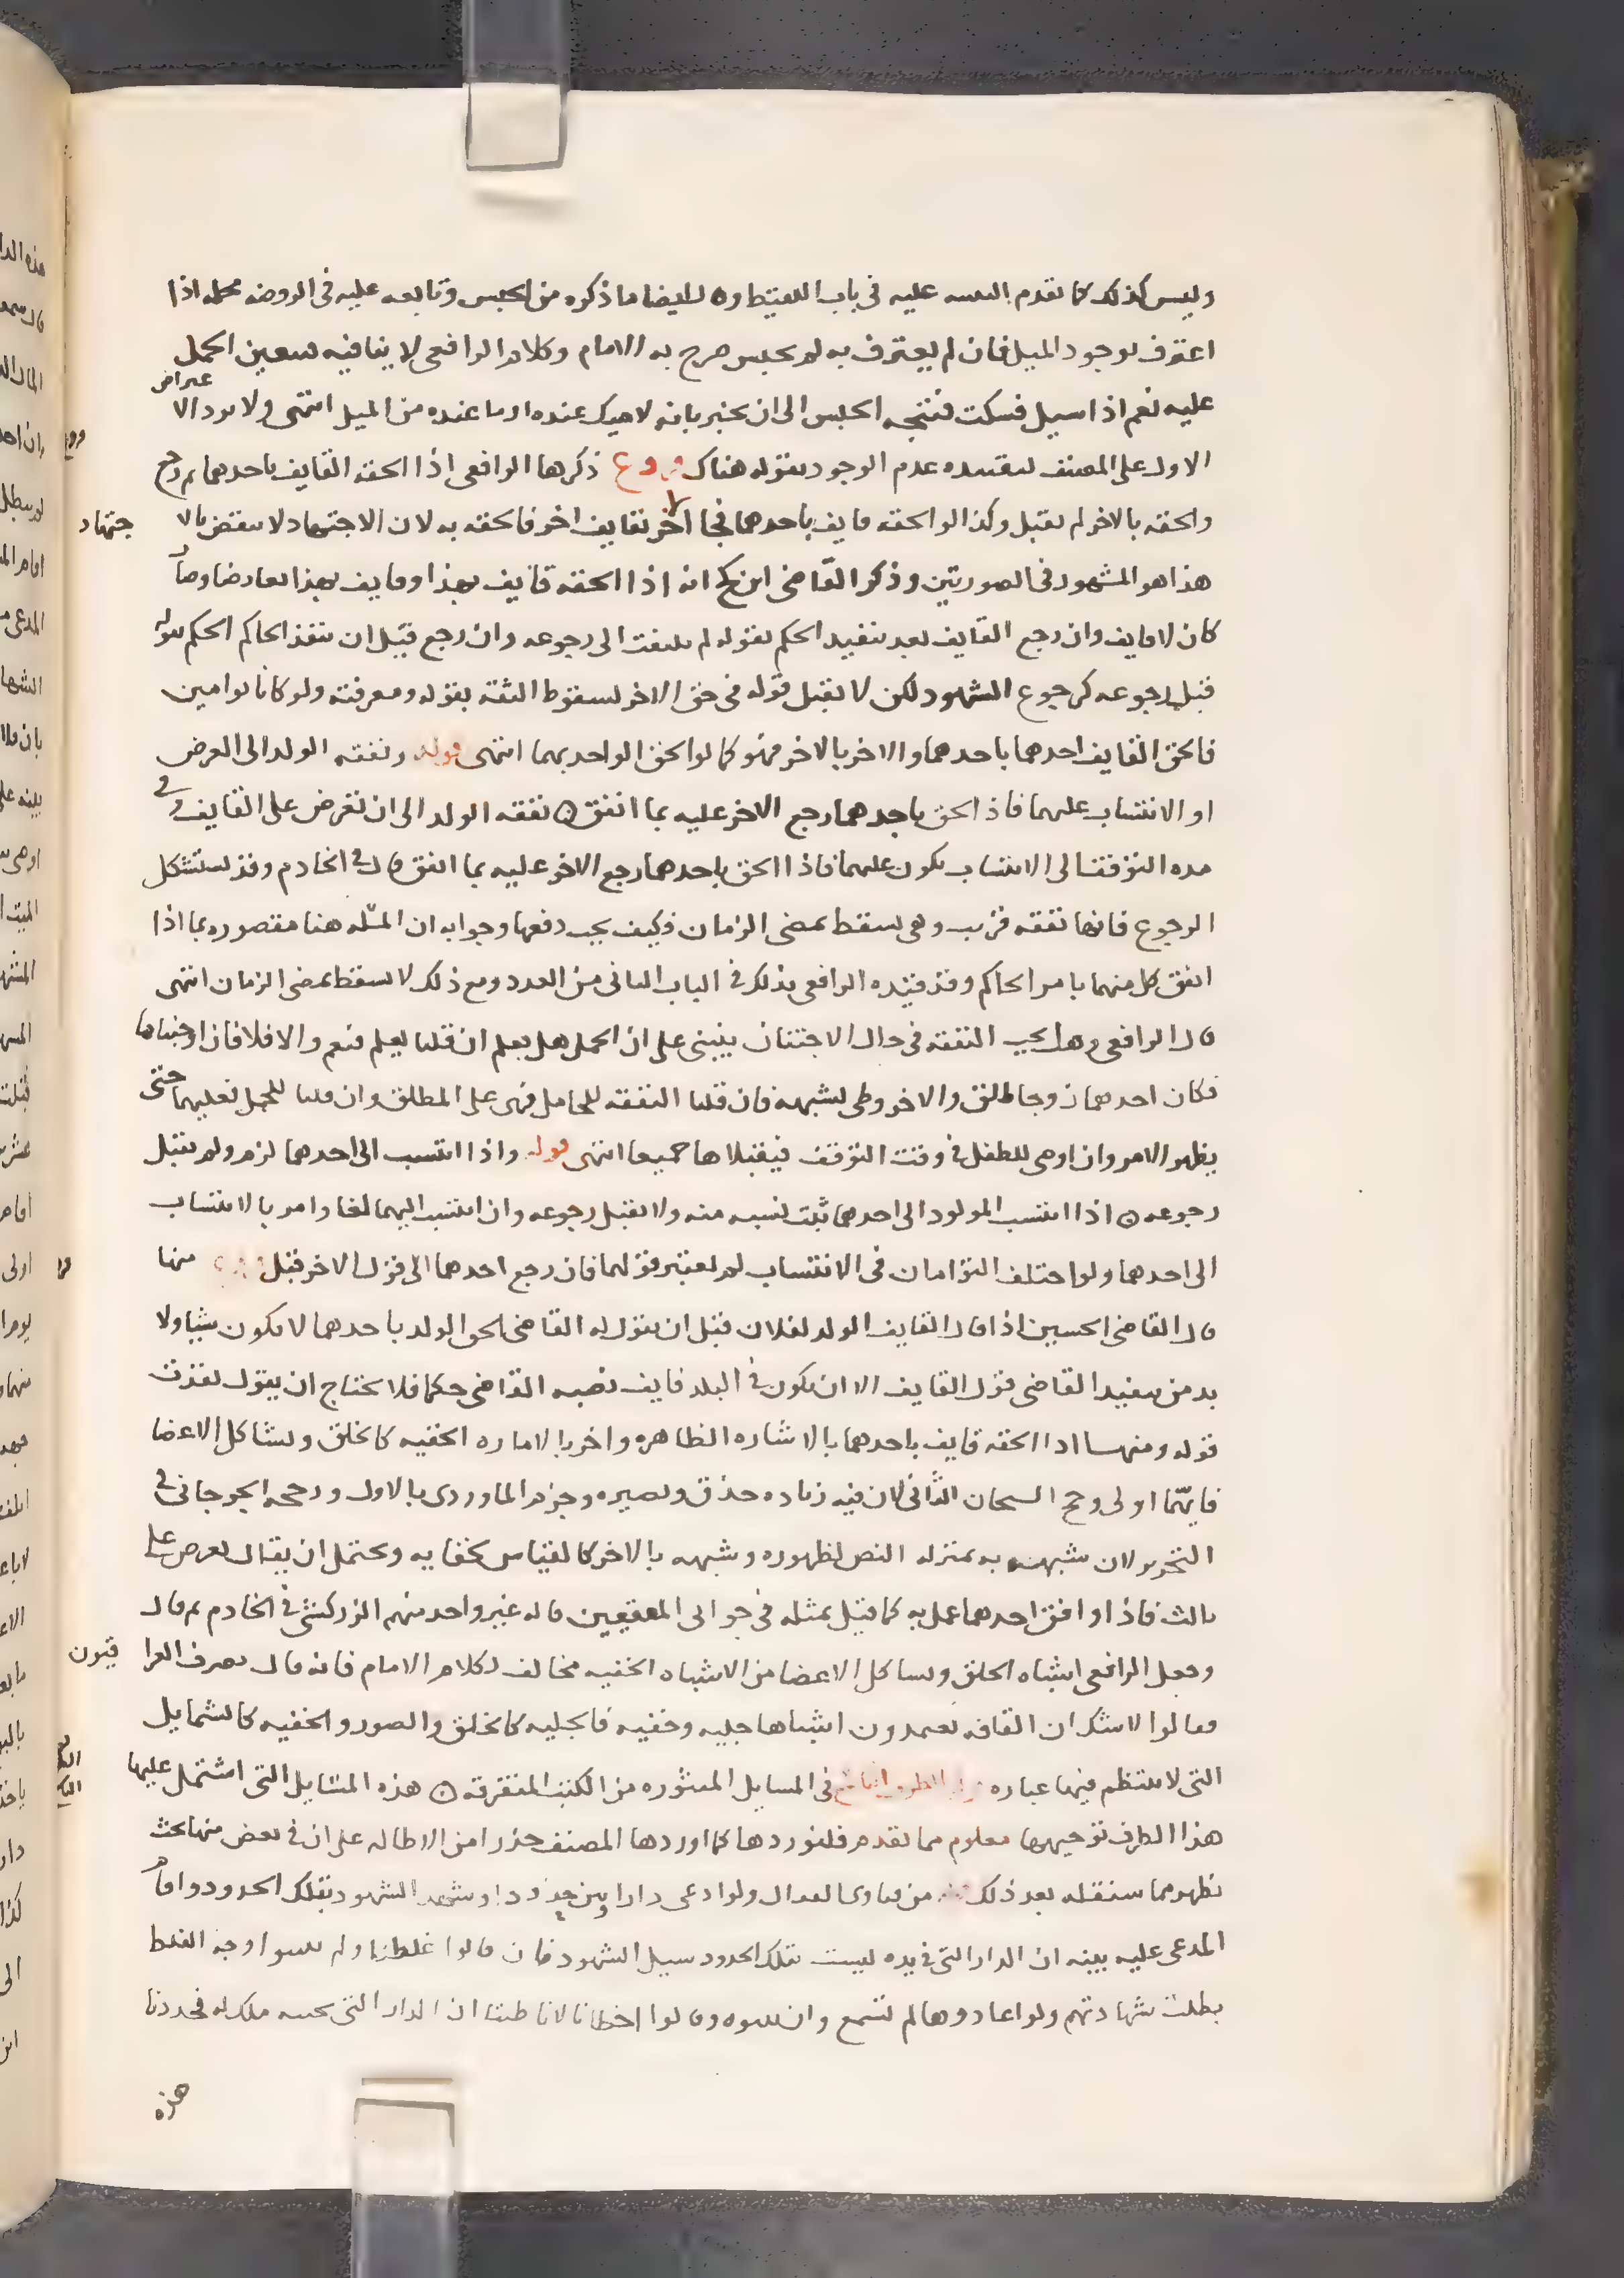 وليس كذلك كما تقدم التنبيه عليه في باب اللقيط وقال ايضا ما ذكره من الحبس وتابعه عليه في الروضه محله اذا
اعترف بوجود الميل فان لم يعترف به لم يحبس صرح به الامام وكلام الرافعي لا ينافيه فتعين الحمل
عليه نعم اذا سيل فسكت فيتجه الحبس الى ان يخبر بانه لا ميل عنده او ما عنده من الميل انتهى ولا يرد الاعتراض
الاول على المصنف لتقييده عدم الوجود بقوله هناك فروع ذكرها الرافعي اذا الحقه القايف باحدهما ثم رجع
والحقه بالاخر لم يقبل وكذا لو الحقه قايف باحدهما فجا الاخر بقايف اخر فالحقه به لان الاجتهاد لا ينقض بالاجتهاد
هذا هو المشهور في الصورتين وذكر القاضي ابن كج انه اذا الحقه قايف بهذا وقايف بهذا تعارضا وصار
كان لا قايف وان رجع القايف بعد تنفيد الحكم بقوله لم يلتفت الى رجوعه وان رجع قبل ان ينفذ الحاكم الحكم بقوله
قبل رجوعه كرجوع الشهود لكن لا يقبل قوله في حق الاخر لسقوط الثقه بقوله ومعرفته ولو كانا توامين
فالحق القايف احدهما باحدهما والاخر بالاخر فهو كما لو الحق الواحد بهما انتهى قوله ونفقه الولد الى العرض
او الانتساب عليهما فاذا لحق باحدهما رجع الاخر عليه بما انفق ن نفقه الولد الى ان يعرض على القايف وفي
مده التوقف الى الانتساب يكون عليهما فاذا الحق باحدهما رجع الاخر عليه بما انفق قال في الخادم وقد يستشكل
الرجوع فانها نفقه قريب وهي تسقط بمضي الزمان فكيف يجب دفعها وجوابه ان المسله هنا مقصوره بما اذا
انفق كل منهما بامر الحاكم وقد قيده الرافعي بذلك في الباب الثاني من العدد ومع ذلك لا تسقط بمضي الزمان انتهى
قال الرافعي وهل تجب النفقه في حال الاجتنان ينبني على ان الحمل هل يعلم ان قلنا يعلم فنعم والا فلا فان اوجبناها
فكان احدهما زوجا طلق والاخر وطي لشبهه فان قلنا النفقه للحامل فهي على المطلق وان قلنا للحمل فعليهما حتى
يظهر الامر وان اوصى للطفل في وقت التوقف فيقبلاها جميعا انتهى قوله واذا انتسب الى احدهما لزم ولم يقبل
رجوعه ن اذا انتسب المولود الى احدهما ثبت نسبه منه ولا يقبل رجوعه وان انتسب اليهما لغا وامر بالانتساب
الى احدهما ولو اختلف التوامان في الانتساب لم يعتبر قولهما فان رجع احدهما الى قول الاخر قبل فروع منها
قال القاضي الحسين اذا قال القايف الولد لفلان قبل ان يقول له القاضي الحق الولد باحدهما لا يكون شيا ولا
بد من تنفيد القاضي قول القايف الا ان يكون في البلد قايف نصبه القاضي حكما فلا يحتاج ان يقول نفذت
قوله ومنها اذا الحقه قايف باحدهما بالاشاره الظاهره واخر بالاماره الخفيه كالخلق وتشاكل الاعضا
فايهما اولى رجح الشيخان الثاني لان فيه زياده حذق وبصيره وجزم الماوردي بالاول ورجحه الجرجاني في
التحرير لان شبهه به بمنزله النص لظهوره وشبهه بالاخر كالقياس لخفايه ويحتمل ان يقال يعرض على
ثالث فاذا وافق احدهما عمل به كما قيل بمثله في جوابي المفتيين قاله غير واحد منهم الزركشي في الخادم ثم قال
وجعل الرافعي اشباه الخلق وتشاكل الاعضا من الاشباه الخفيه مخالف لكلام الامام فانه قال تصرف العراقيون
فقالوا لا شك ان القافه يعتمدون اشباها جليه وخفيه فالجليه كالخلق والصور والخفيه كالشمايل
التي لا ينتظم فيها عباره قوله الطرف السابع في المسايل المنثوره من الكتب المتفرقه ن هذه المسايل التي اشتمل عليها
هذا الطرف توجيهها معلوم مما تقدم فلنوردها كما اوردها المصنف حذرا من الاطاله على ان في بعض منها بحث
يظهر مما سننقله بعد ذلك من فتاوى القفال ولو ادعى دارا وبين حدودها وشهد الشهود بتلك الحدود واقام
المدعى عليه بينه ان الدار التي في يده ليست بتلك الحدود سيل الشهود فان قالوا غلطنا ولم يبينوا وجه الغلط
بطلت شهادتهم ولو اعادوها لم تسمع وان بينوه وقالوا اخطانا لانا ظننا ان الدار التي بجنبه ملك له فحددنا
هذه